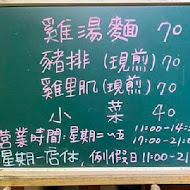 雞湯麵 70
豬排(現煎) 70
雞里肌(現煎) 70
小菜 40
營業時間:星期二~五 11:00-14:
17:00-21:
星期一店休,例假日 11:00-21